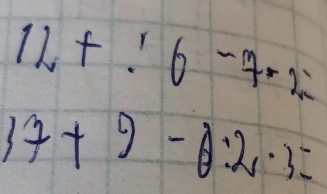 12 + : 6 - 7 · 2 =
37 + 9 - 8 : 2 · 3 =